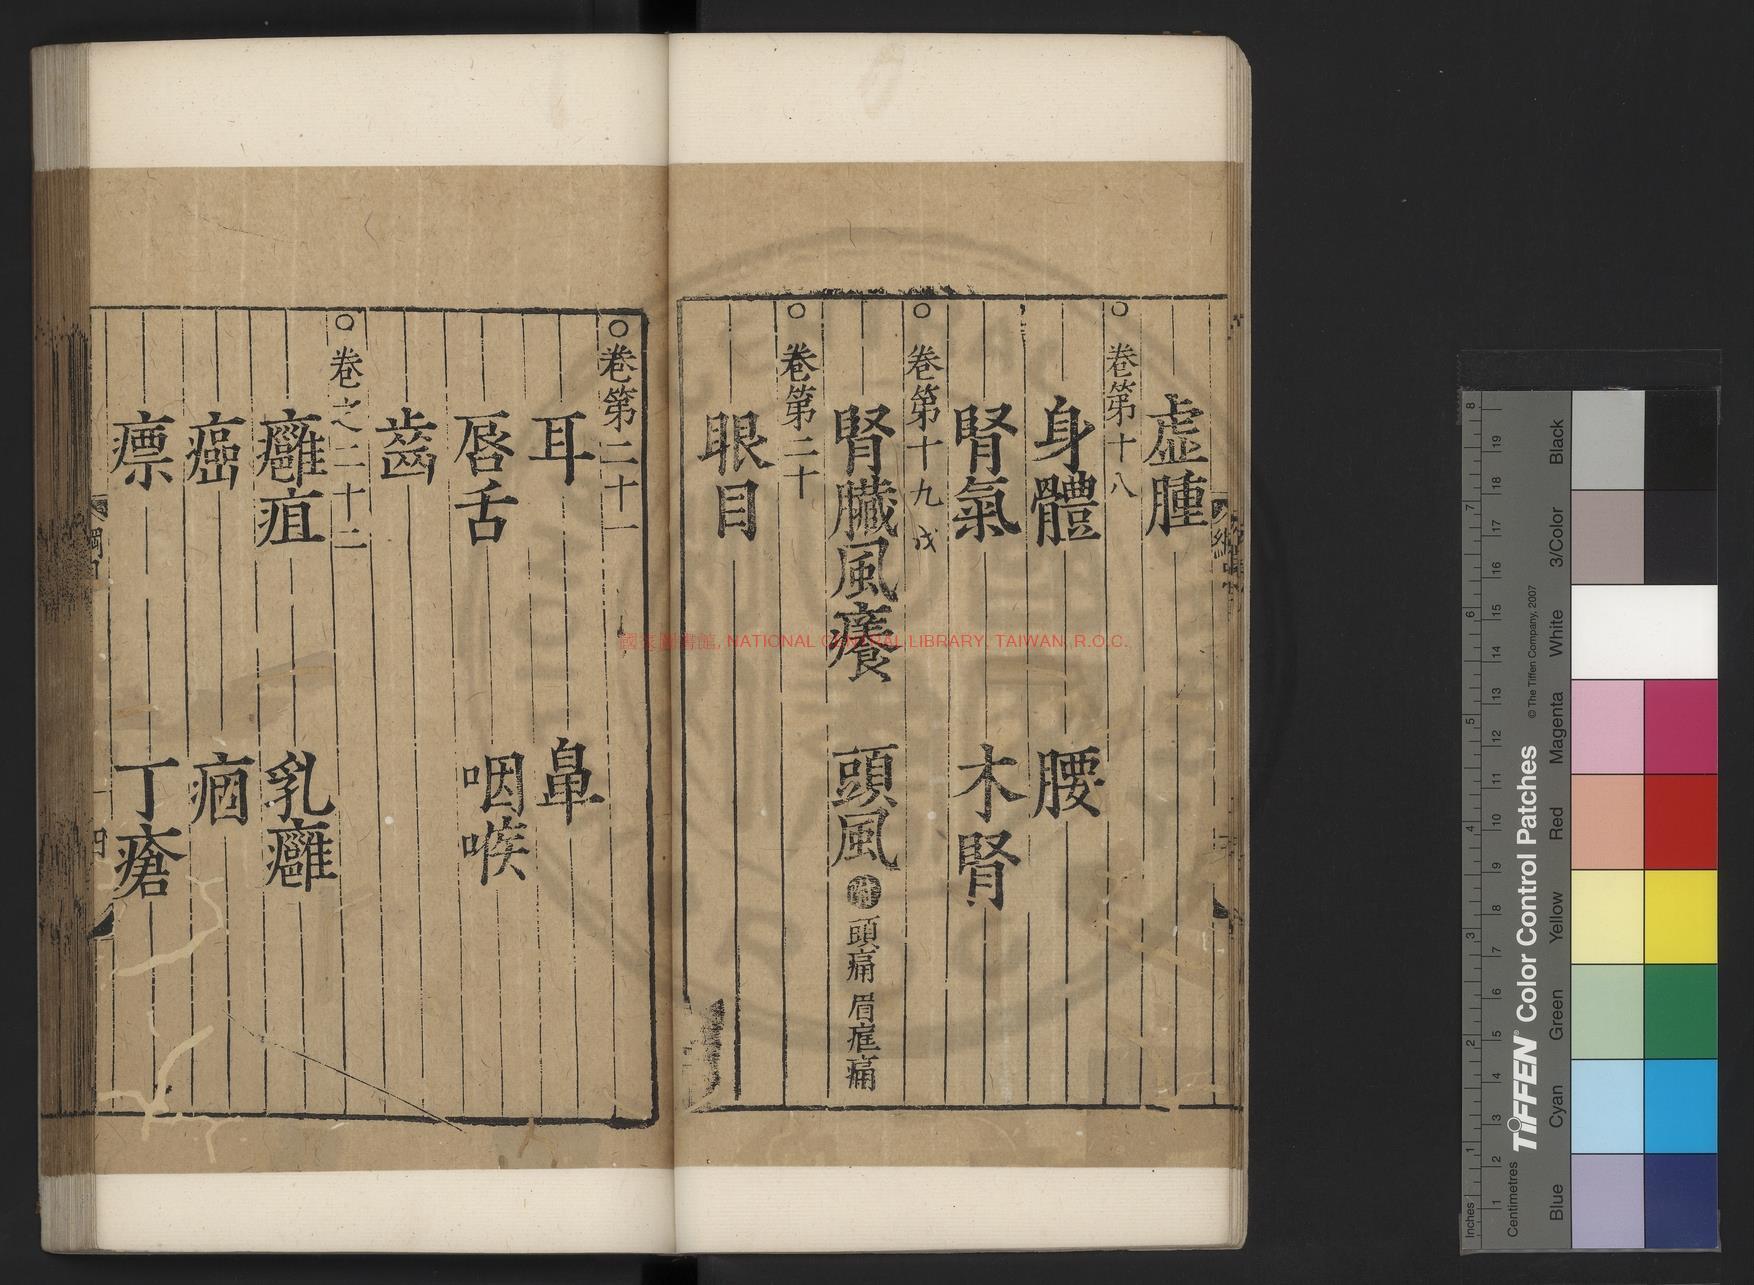 虛腫
○卷第十八
身體 腰
腎氣 木腎
○卷第十九
腎臟風癢 頭風 附 頭痛 眉眶痛
○卷第二十
眼目
○卷第二十一
耳 鼻
唇舌 咽喉
齒
○卷之二十二
癰疽 乳癰
癌 痼
瘭 丁瘡
國家圖書館, NATIONAL CENTRAL LIBRARY, TAIWAN, R.O.C.
Inches
Centimetres
TIFFEN® Color Control Patches
© The Tiffen Company, 2007
Blue Cyan Green Yellow Red Magenta White 3/Color Black
1 2 3 4 5 6 7 8
1 2 3 4 5 6 7 8 9 10 11 12 13 14 15 16 17 18 19